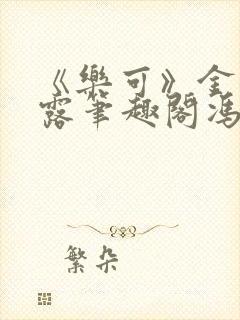 《樂可》金
露筆趣閣馮
繁朵